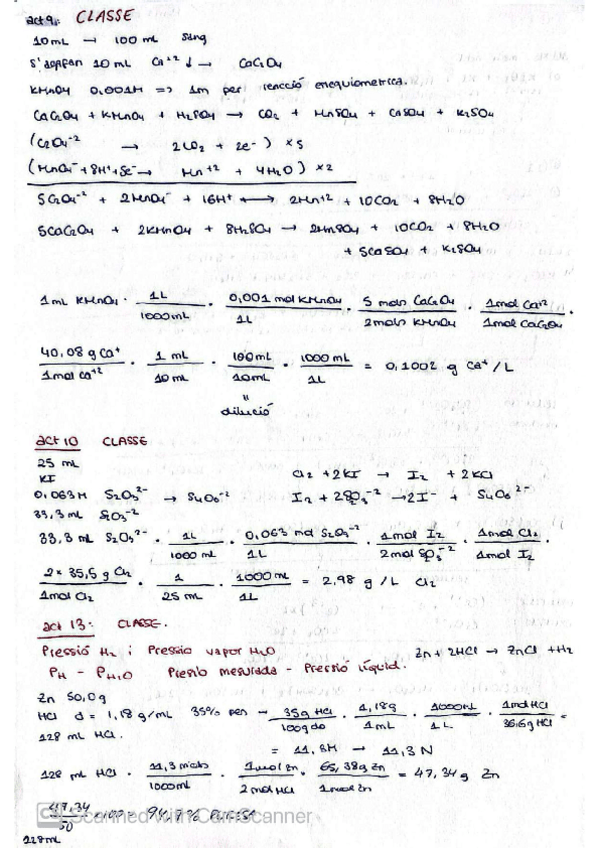 act 9: CLASSE
10mL → 100 mL sang
S'agafen 10 mL Ca⁺² ↓ → CaC₂O₄
KMnO₄ 0,001M => 1m per reacció enequiometrica.
CaC₂O₄ + KMnO₄ + H₂SO₄ → CO₂ + MnSO₄ + CaSO₄ + K₂SO₄
(C₂O₄⁻² → 2CO₂ + 2e⁻) x5
(MnO₄⁻ + 8H⁺ + 5e⁻ → Mn⁺² + 4H₂O) x2
5C₂O₄⁻² + 2MnO₄⁻ + 16H⁺ ⟷ 2Mn⁺² + 10CO₂ + 8H₂O
5CaC₂O₄ + 2KMnO₄ + 8H₂SO₄ → 2MnSO₄ + 10CO₂ + 8H₂O
+ 5CaSO₄ + K₂SO₄
1mL KMnO₄ · 1L/1000mL · 0,001 mol KMnO₄/1L · 5 mols CaC₂O₄/2mols KMnO₄ · 1mol Ca⁺²/1mol CaC₂O₄ ·
40,08 g Ca⁺/1mol Ca⁺² · 1 mL/10 mL · 100mL/10mL · 1000 mL/1L = 0,1002 g Ca⁺/L
=
dilució
act 10 CLASSE
25 mL
KI Cl₂ + 2KI → I₂ + 2KCl
0,063M S₂O₃²⁻ → S₄O₆⁻² I₂ + 2S₂O₃⁻² → 2I⁻ + S₄O₆⁻²
33,3 mL S₂O₃⁻²
33,3 mL S₂O₃²⁻ · 1L/1000 mL · 0,063 mol S₂O₃⁻²/1L · 1mol I₂/2mol S₂O₃⁻² · 1mol Cl₂/1mol I₂ ·
2 * 35,5 g Cl₂/1mol Cl₂ · 1/25 mL · 1000 mL/1L = 2,98 g/L Cl₂
act 13: CLASSE.
Pressió H₂ i Pressio vapor H₂O Zn + 2HCl → ZnCl + H₂
P_H - P_H₂O Presió mesurada - Pressió líquid.
Zn 50,0g
HCl d = 1,18 g/mL 35% pen → 35g HCl/100g do · 1,18g/1 mL · 1000mL/1L · 1mol HCl/36,5g HCl =
128 mL HCl. = 11,3M → 11,3 N
128 mL HCl · 11,3 mols/1000mL · 1mol Zn/2mol HCl · 65,38g Zn/1mol Zn = 47,34g Zn
47,34/50 *100 = 94,7% PURESA
CS Scanned with CamScanner
128mL